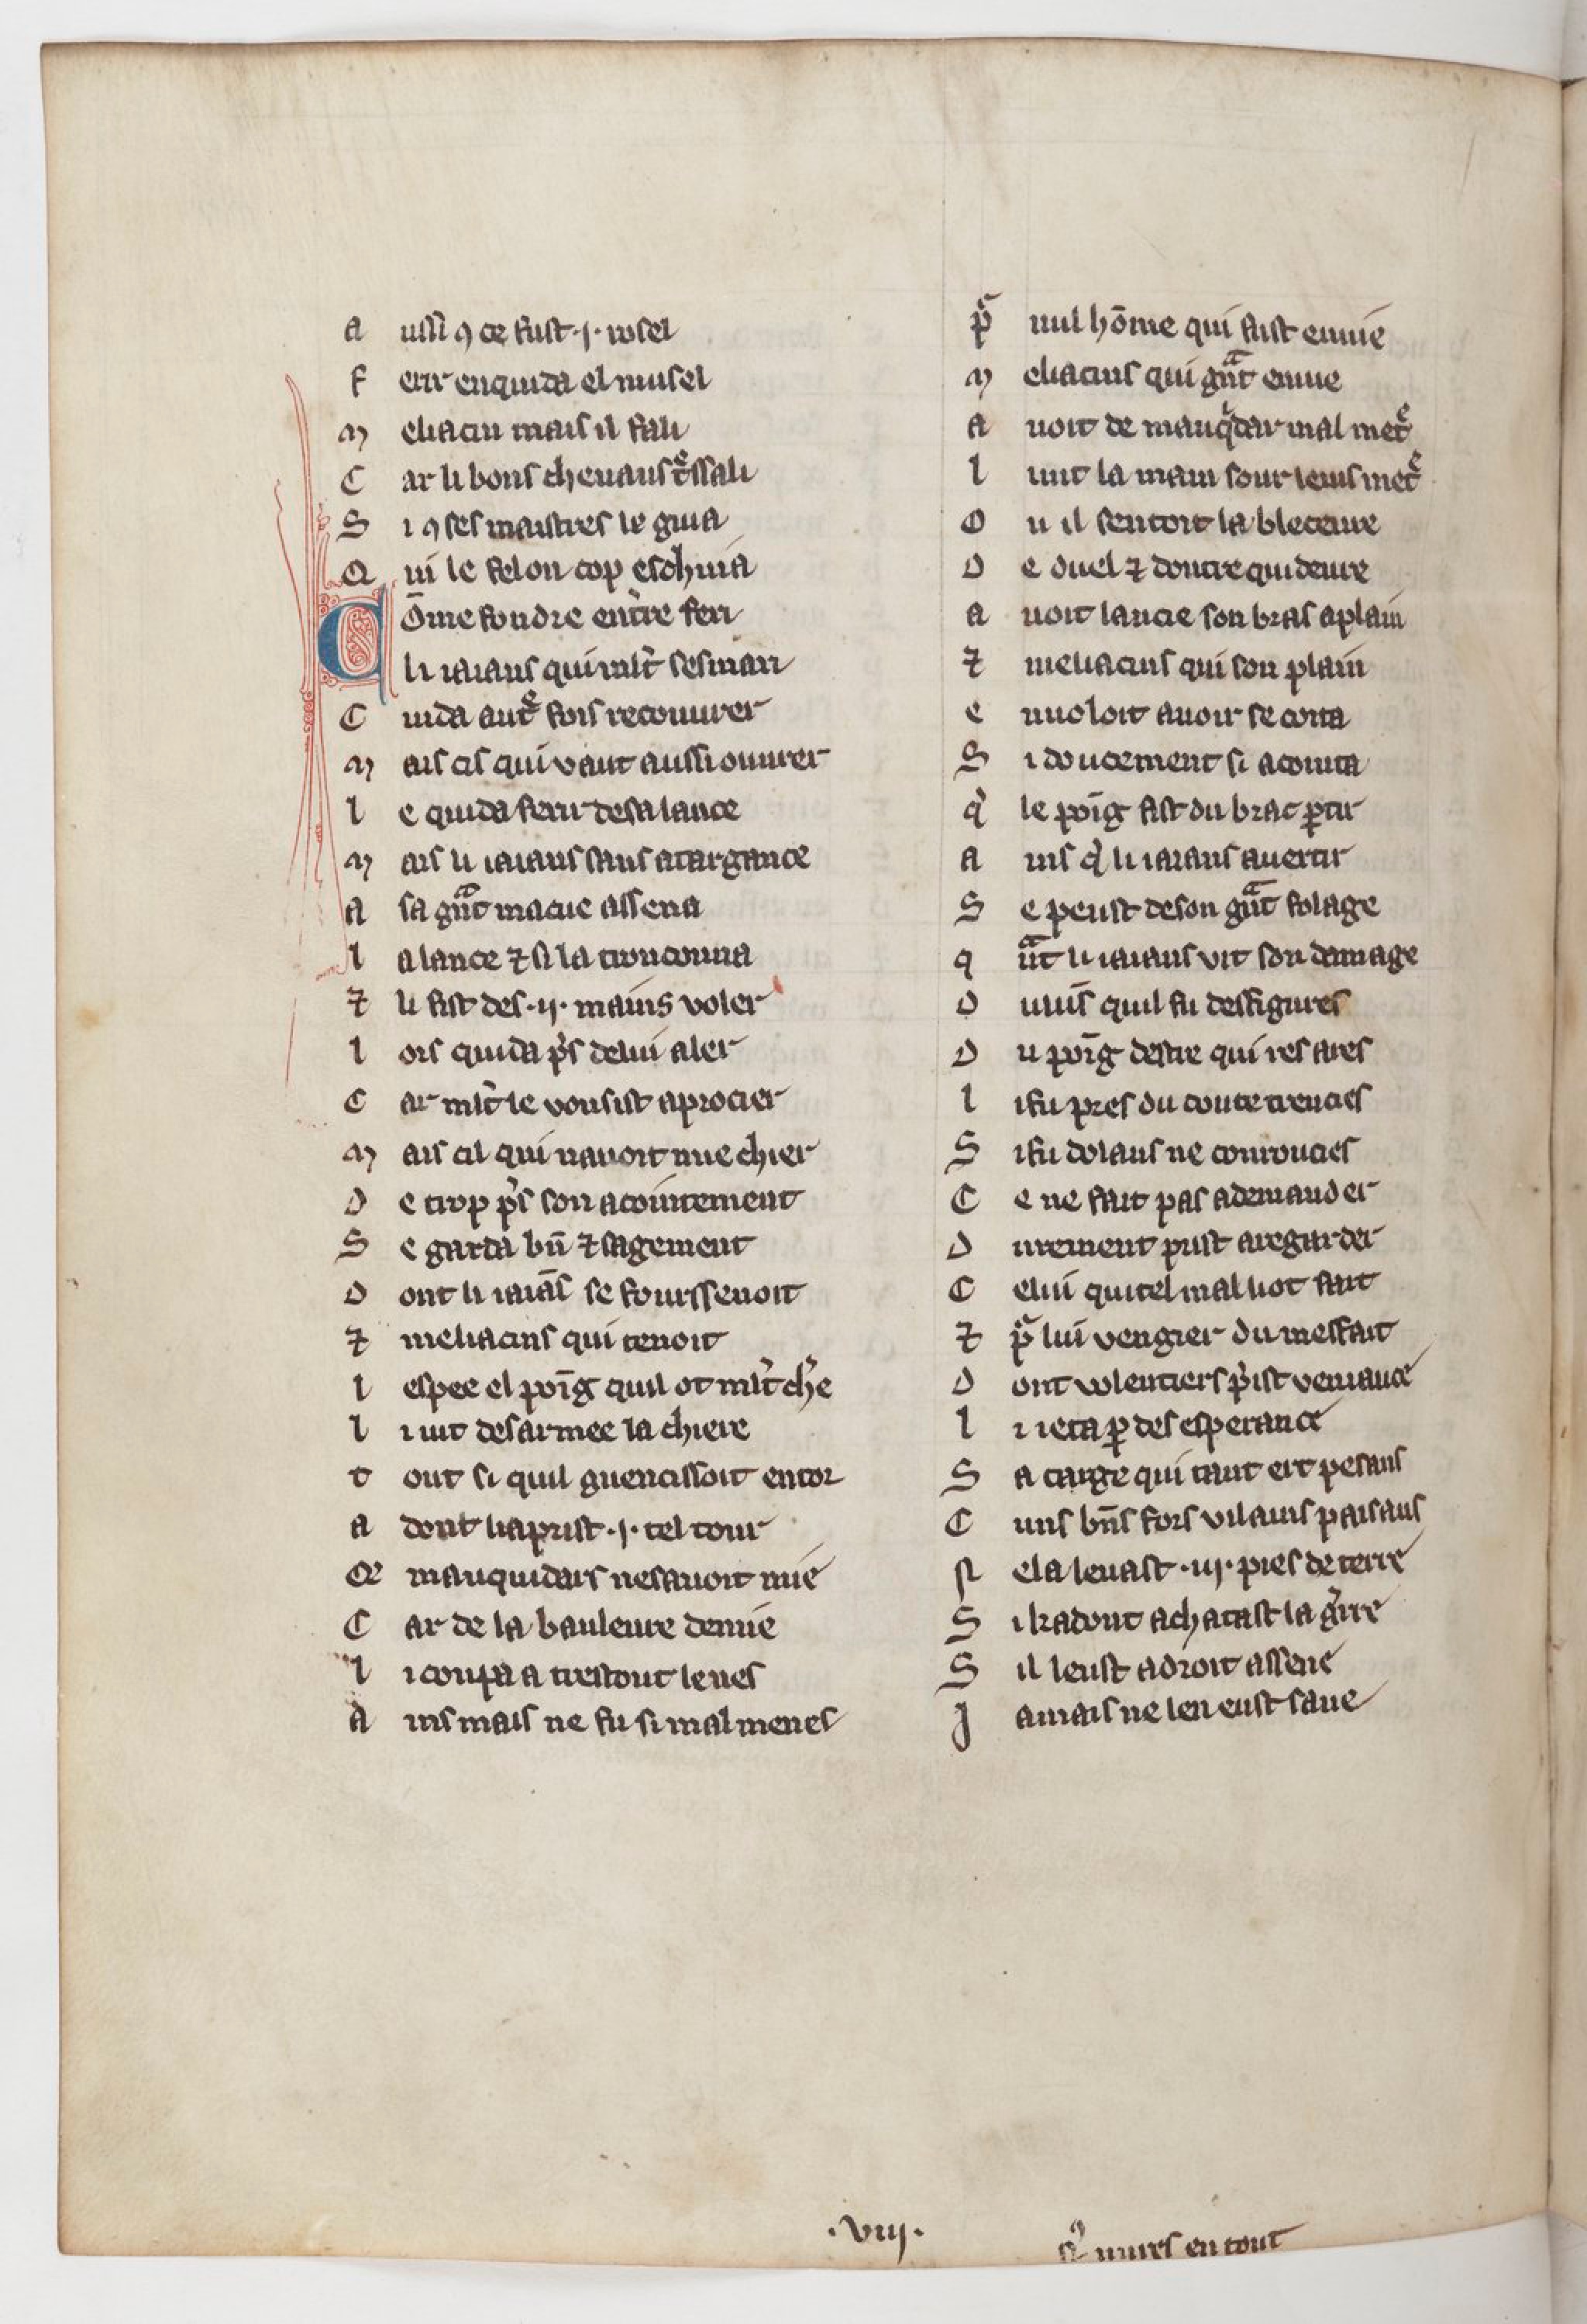 a ussi ꝯ ce fust ·j· rosel
f erir en quida el musel
m eliacin mais il fali
C ar li bons cheuaus tͤssali
S i ꝯ ses maistres le guia
Q ui le felon cop eschuia
Cōme foudre entͥre feri
li iaians qui mlt̓ sesmari
C uida autͤ fois recouurer
m ais cis qui vaut aussi ouurer
l e quida ferir de sa lance
m ais li iaians sans atargance
a sa gnͣt macue assena
l a lance ⁊ si la tronconna
⁊ li fist des ·ij· mains voler
l ors quida pͥs de lui aler
C ar mlt̓ le vousist aprocier
m ais cil qui nauoit mie chier
D e trop pͥs son acointement
S e garda bn̄ ⁊ sagement
D ont li iaiās se fourssenoit
⁊ meliacins qui tenoit
l espee el poīg quil ot mlt̓ chͥe
l i uit desarmee la chiere
t out si quil guencissoit entor
a dont li aprist ·j· tel tour
Q̄ mauquidars ne sauoit mie
C ar de la bauleure demie
l i coupa a trestout le nes
A ins mais ne fu si mal menes
pͬ nul hōme qui fust en uie
m eliacins qui gnͣt enuie
a uoit de mauqͥdar mal metͤ
l iuit la main sour le uis metͤ
O u il sentoit la bleceure
D e duel ⁊ dontre quideure
a uoit lancie son bras a plain
⁊ meliacins qui son plain
e nuoloit auoir se coita
S i doucement si acointa
q̓ le poīg fist du brac ꝑtir
a ins q̓ li iaians auertir
S e peust de son gnͣt folage
q ūͣt li iaians vit son damage
D uuis quil fu desfigures
D u poīg destre qui res a res
l i fu pres du coute trencies
S i fu dolans ne courroucies
C e ne fait pas a demander
D urement prist a regarder
C elui qui tel mal li ot fait
⁊ pͬ lui vengier du mesfait
D ont volentiers pͥst veniance
l i ieta ꝑ desesperance
S a targe qui tant ert pesans
C uns bn̄s fors vilains paisans
N el a leuast ·iij· pies de terre
S i kadont achatast la gͥrre
S il leust a droit assene
J amais ne len eust saue
·viij·
qͥ nures en tout